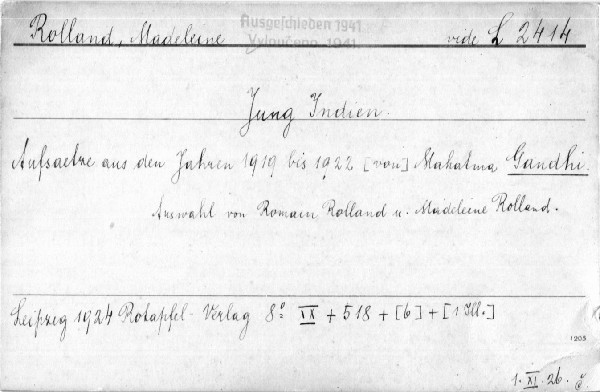 Ausgeschieden 1941
Vyloučeno 1941
Rolland, Madeleine vide L 2414
Jung Indien.
Aufsaetze aus den Jahren 1919 bis 1922 [von] Mahatma Gandhi.
Auswahl von Romain Rolland u. Madeleine Rolland.
Leipzig 1924 Rotapfel-Verlag 8º: IX + 518 + [6] + [1 Ill.]
1205
1. XI. 26.